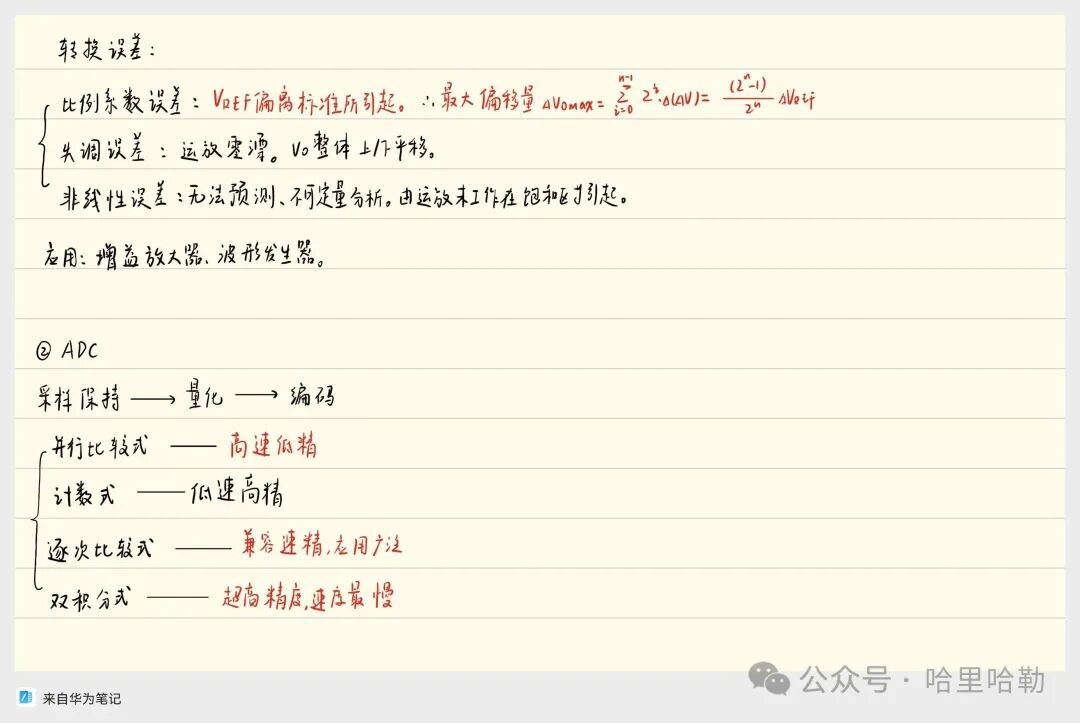 转换误差：
比例系数误差：VREF偏离标准所引起。∴最大偏移量 ΔVomax = \sum_{i=0}^{n-1} 2^i·Δ(ΔV) = \frac{(2^n-1)}{2^n} ΔVref
失调误差：运放零漂。Vo整体上/下平移。
非线性误差：无法预测、不可定量分析。由运放未工作在饱和区时引起。
应用：增益放大器、波形发生器。
② ADC
采样保持 → 量化 → 编码
并行比较式 —— 高速低精
计数式 —— 低速高精
逐次比较式 —— 兼容速精，应用广泛
双积分式 —— 超高精度，速度最慢
公众号 · 哈里哈勒
来自华为笔记